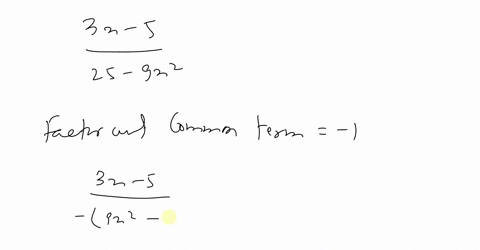 3x - 5
25 - 9x²
Factor out Common term = -1
3x - 5
-(9x² -